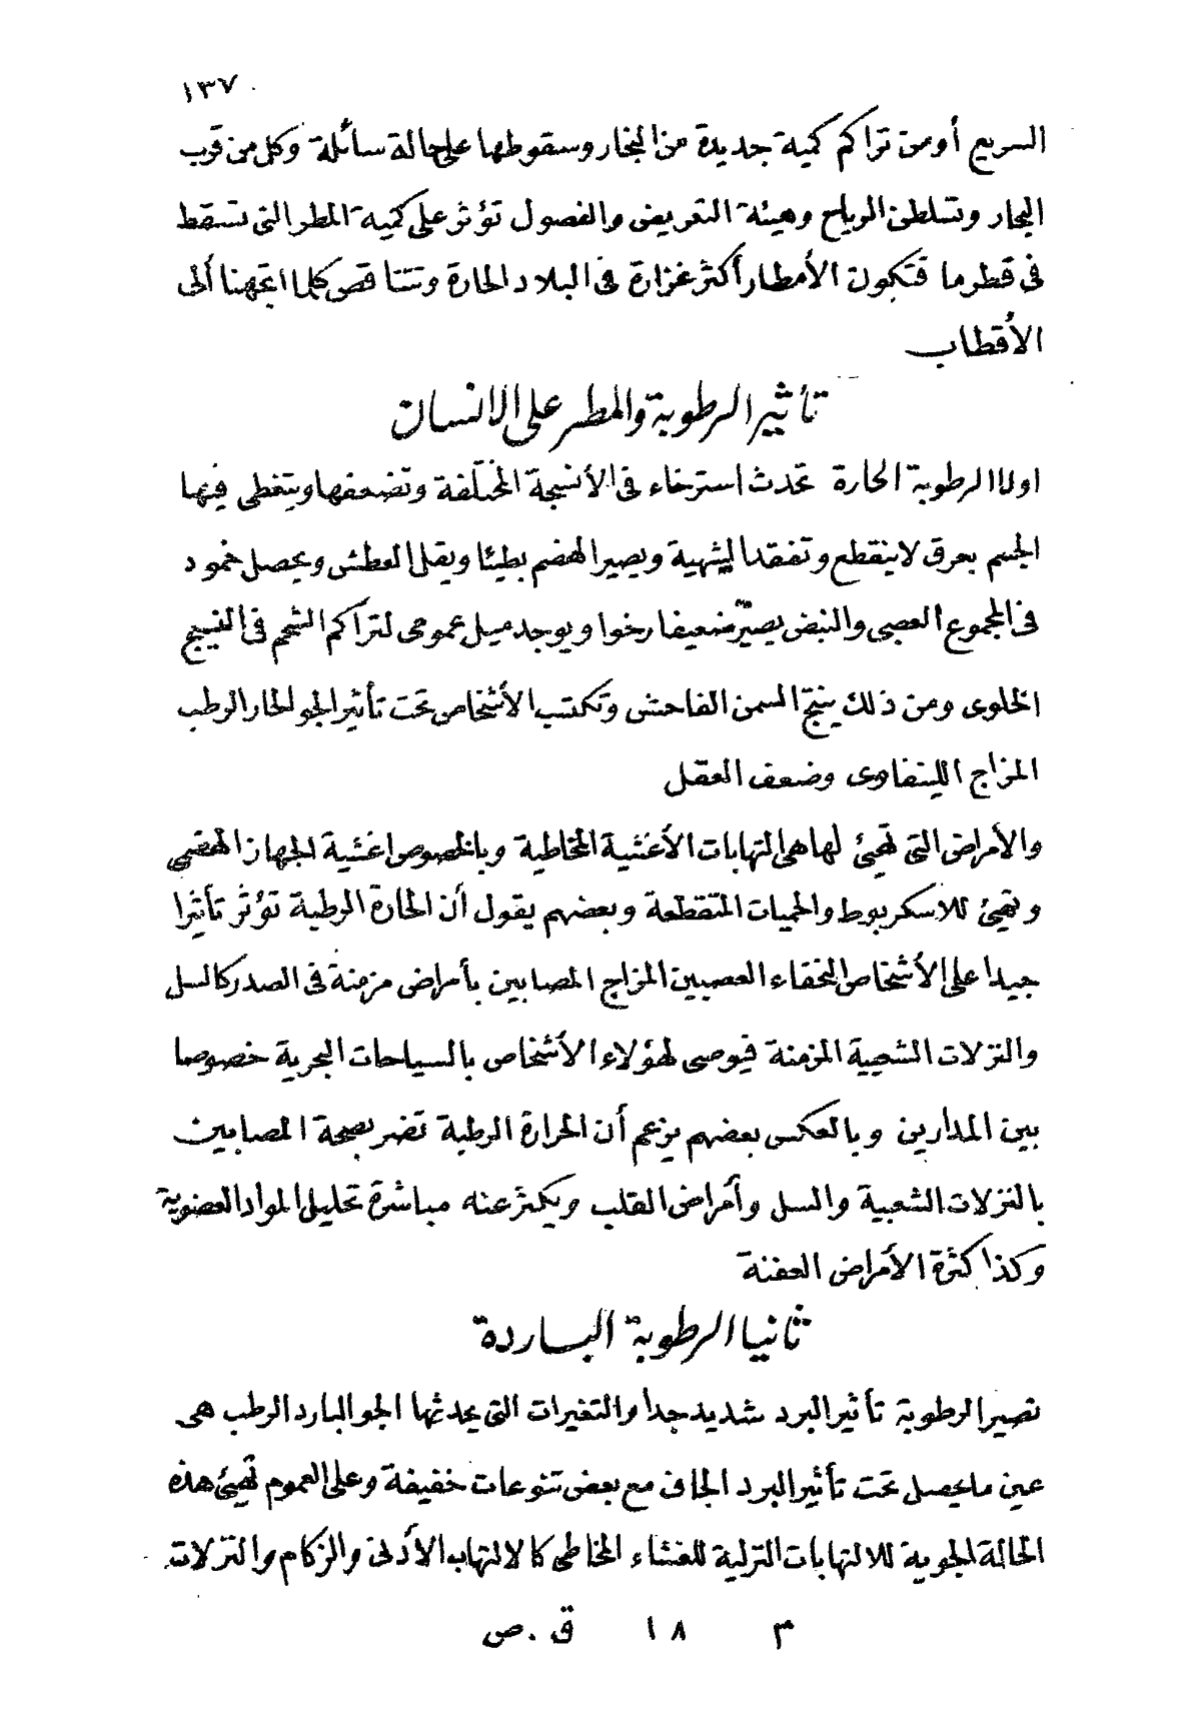 ١٣٧
السريع أومن تراكم كمية جديدة من البخار وسقوطها على حالة سائلة وكل من قرب
البحار وتسلطن الرياح وهيئة التعريض والفصول تؤثر على كمية المطر التى تسقط
فى قطر ما فتكون الأمطار أكثر غزارة فى البلاد الحارة وتتناقص كلما اتجهنا ألى
الأقطاب
تأثير الرطوبة والمطر على الانسان
اولا الرطوبة الحارة تحدث استرخاء فى الأنسجة المختلفة وتضعفها ويتغطى فيها
الجسم بعرق لا ينقطع وتفقد الشهية ويصير الهضم بطيئا ويقل العطش ويحصل خمود
فى المجموع العصبى والنبض يصيّر ضعيفا رخوا ويوجد ميل عمومى لتراكم الشحم فى النسيج
الخلوى ومن ذلك ينتج السمن الفاحش وتكتسب الأشخاص تحت تأثير الجو الحار الرطب
المزاج اللينفاوى وضعف العقل
والأمراض التى تهيئ لها هى التهابات الأغشية المخاطية وبالخصوص اغشية الجهاز الهضمى
وتهيئ للاسكربوط والحميات المتقطعة وبعضهم يقول أن الحارة الرطبة تؤثر تأثيرا
جيدا على الأشخاص النحفاء العصبيين المزاج المصابين بأمراض مزمنة فى الصدر كالسل
والنزلات الشعبية المزمنة فيوصى لهؤلاء الأشخاص بالسياحات البحرية خصوصا
بين المدارين وبالعكس بعضهم يزعم أن الحرارة الرطبة تضر بصحة المصابين
بالنزلات الشعبية والسل وأمراض القلب ويكثر عنه مباشرة تحليل المواد العضوية
وكذا كثرة الأمراض العفنة
ثانيا الرطوبة الباردة
تصير الرطوبة تأثير البرد شديد جدا والتغيرات التى يحدثها الجو البارد الرطب هى
عين ما يحصل تحت تأثير البرد الجاف مع بعض تنوعات خفيفة وعلى العموم تهيئ هذه
الحالة الجوية للالتهابات النزلية للغشاء المخاطى كالالتهاب الأذنى والزكام والنزلات
٣ ١٨ ق . ص